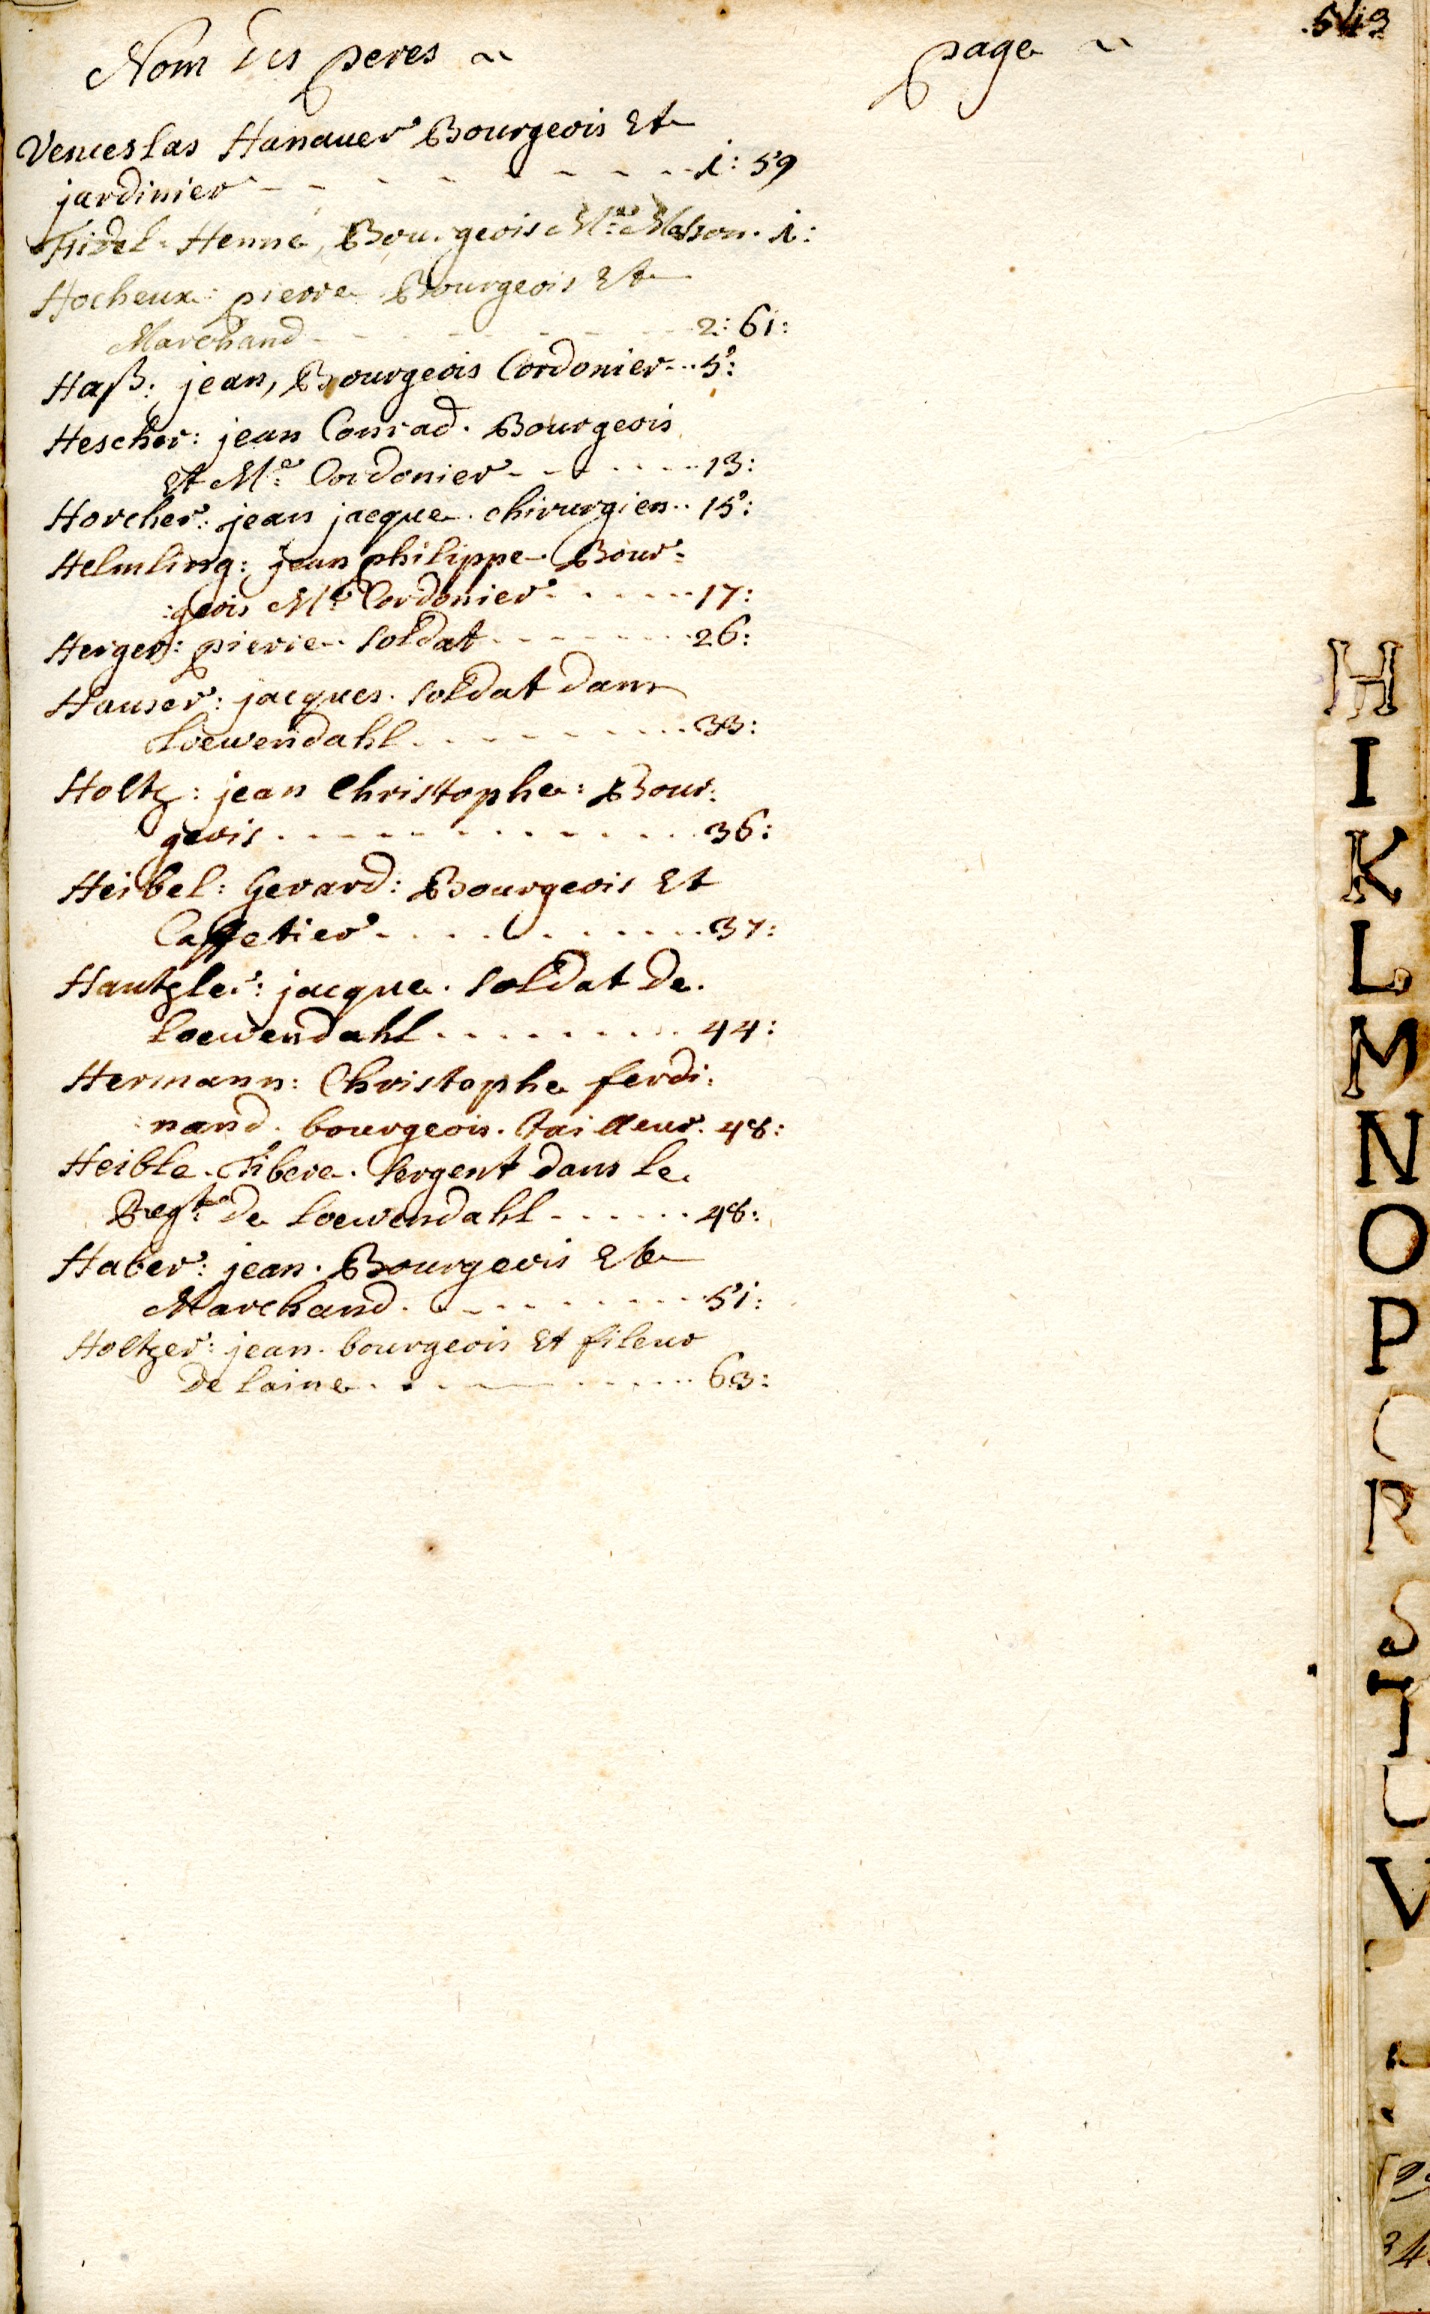 543
Nom Des peres ~ page ~
Venceslas Hanauer Bourgeois Et
jardinier - - - - - - - - 1: 59
Fidel Henné, Bourgeois Mre Masson. 1:
Hocheux: pierre Bourgeois Et
Marchand - - - - - - 2: 61:
Haß: jean, Bourgeois Cordonier - - 5:
Hescher: jean Conrad. Bourgeois
Et Me: Cordonier - - - - - - 13:
Horcher: jean jacque. chirurgien. . 15:
Helmling: jean philippe. Bour:
:geois Me Cordonier - - - - - 17:
Herger: pierre. soldat - - - - - - - 26:
Hauser: jacques. soldat dans
Loewendahl - - - - - - - - - 33:
Holtz: jean Christophe: Bour:
geois. - - - - - - - - - - - 36:
Heibel: Gerard: Bourgeois Et
Caffetier - . . . . . . . . . 37:
Hautzler: jacque. soldat de.
Loewendahl . . . . . . . . 44:
Hermann: Christophe ferdi:
nand. bourgeois. tailleur. 48:
Heible. Tibere. sergent dans le.
Regt: de Loewendahl - - - - - - 48:
Haber: jean. Bourgeois Et
Marchand. - - - - - - - - 51:
Holtzer: jean. bourgeois Et fileur
de laine. . . - - - - - - . . . 63:
H
I
K
L
M
N
O
P
R
S
T
U
V